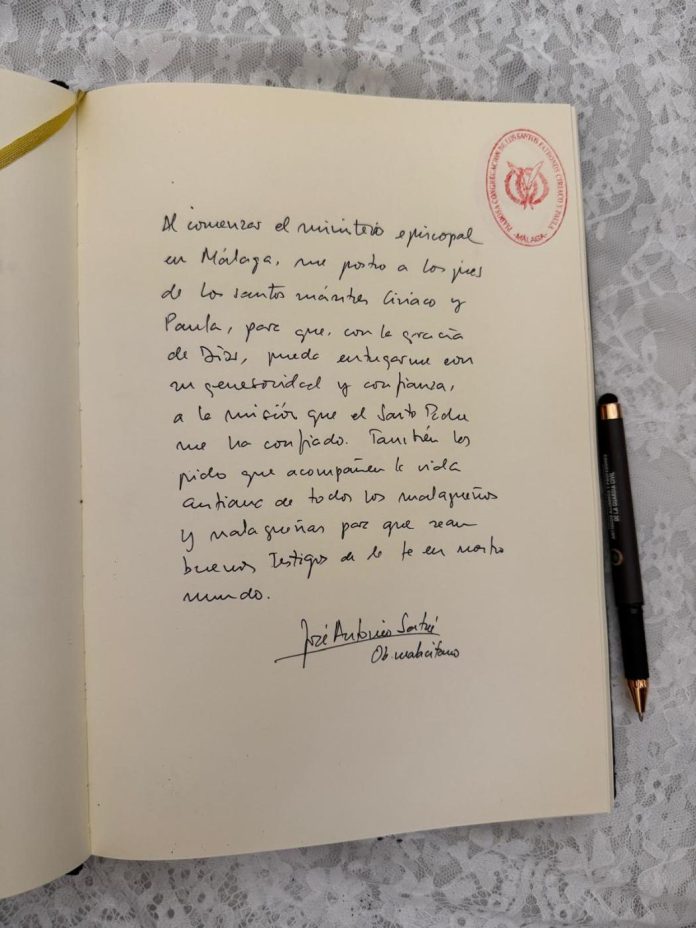 PIADOSA CONGREGACIÓN DE LOS SANTOS PATRONOS CIRIACO Y PAULA
-MÁLAGA-
Al comenzar el ministerio episcopal
en Málaga, me postro a los pies
de los santos mártires Ciriaco y
Paula, para que, con la gracia
de Dios, pueda entregarme con
generosidad y confianza,
a la misión que el Santo Padre
me ha confiado. También les
pido que acompañen la vida
cristiana de todos los malagueños
y malagueñas para que sean
buenos testigos de la fe en nuestro
mundo.
José Antonio Satué
Ob. malacitano
DE LA GUARDIA CIVIL